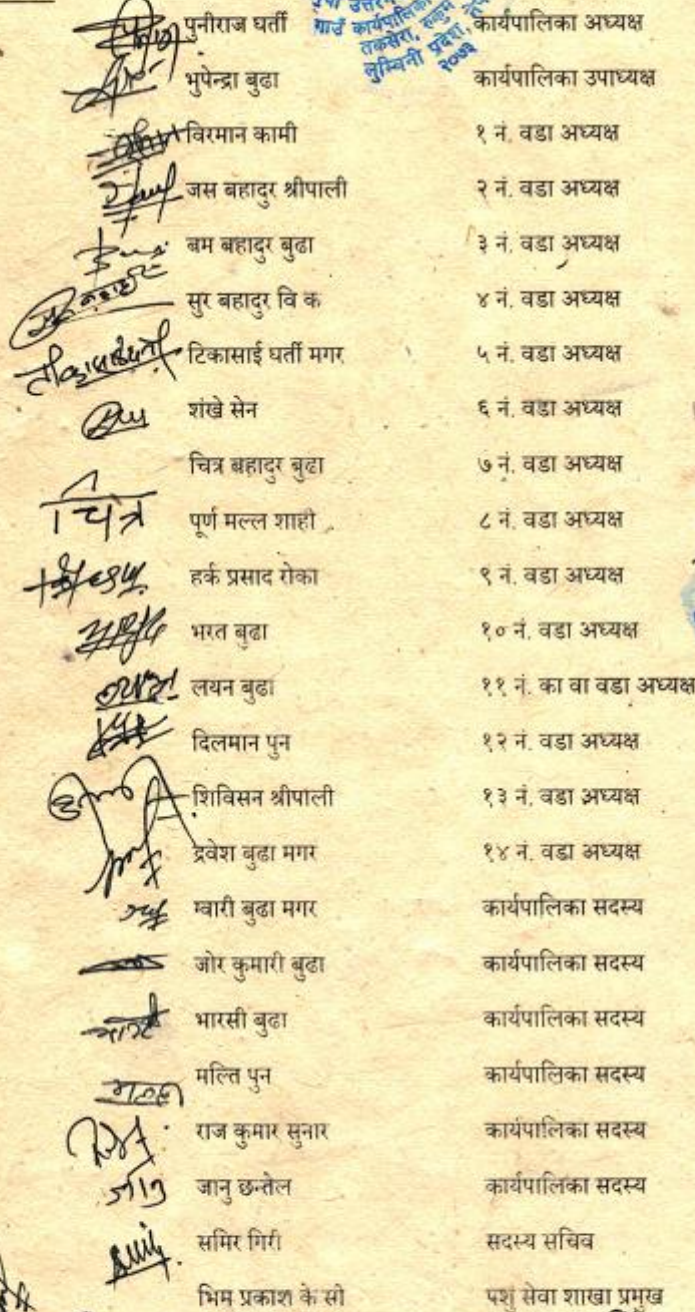 पुनीराज घर्ती कार्यपालिका अध्यक्ष
गाउँ कार्यपालिका
तकसेरा, रुकुम
लुम्बिनी प्रदेश,
२०७३
भुपेन्द्रा बुढा कार्यपालिका उपाध्यक्ष
विरमान कामी १ नं. वडा अध्यक्ष
जस बहादुर श्रीपाली २ नं. वडा अध्यक्ष
बम बहादुर बुढा ३ नं. वडा अध्यक्ष
सुर बहादुर वि क ४ नं. वडा अध्यक्ष
टिकासाई घर्ती मगर ५ नं. वडा अध्यक्ष
शंखे सेन ६ नं. वडा अध्यक्ष
चित्र बहादुर बुढा ७ नं. वडा अध्यक्ष
चित्र पूर्ण मल्ल शाही ८ नं. वडा अध्यक्ष
हर्क प्रसाद रोका ९ नं. वडा अध्यक्ष
भरत बुढा १० नं. वडा अध्यक्ष
लयन बुढा ११ नं. का वा वडा अध्यक्ष
दिलमान पुन १२ नं. वडा अध्यक्ष
शिविसन श्रीपाली १३ नं. वडा अध्यक्ष
द्रवेश बुढा मगर १४ नं. वडा अध्यक्ष
ग्वारी बुढा मगर कार्यपालिका सदस्य
जोर कुमारी बुढा कार्यपालिका सदस्य
भारसी बुढा कार्यपालिका सदस्य
मल्ति पुन कार्यपालिका सदस्य
राज कुमार सुनार कार्यपालिका सदस्य
जानु जानु छन्तेल कार्यपालिका सदस्य
समिर गिरी सदस्य सचिव
भिम प्रकाश के सी पशु सेवा शाखा प्रमुख